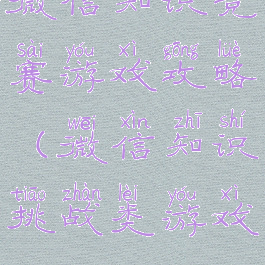 微信知识竞
sài yóu xì gōng lüè
赛游戏攻略
wēi xìn zhī shí
（微信知识
tiǎo zhàn lèi yóu xì
挑战类游戏